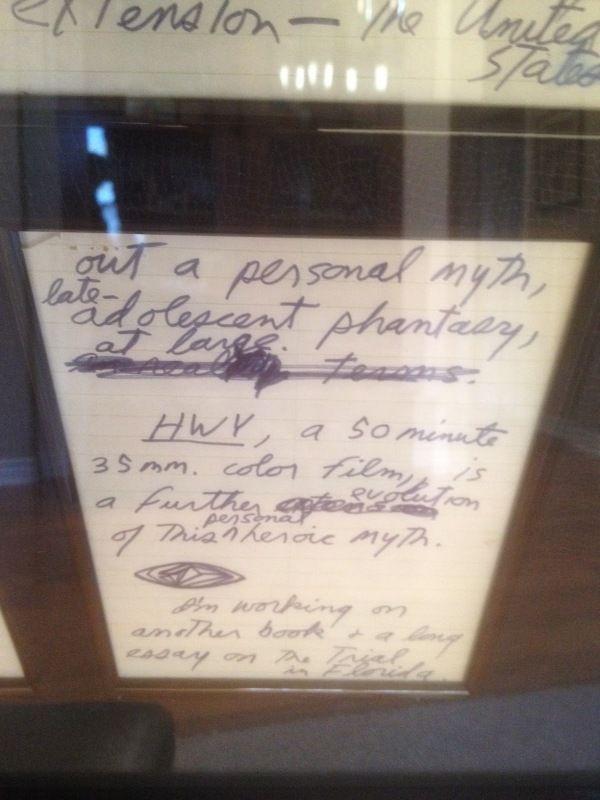 extension — The United
States
out a personal myth,
late-
adolescent phantasy,
at large.
terms.
HWY, a 50 minute
35 mm. color film, is
a further evolution
of this personal heroic myth.
I'm working on
another book + a long
essay on the Trial
in Florida.